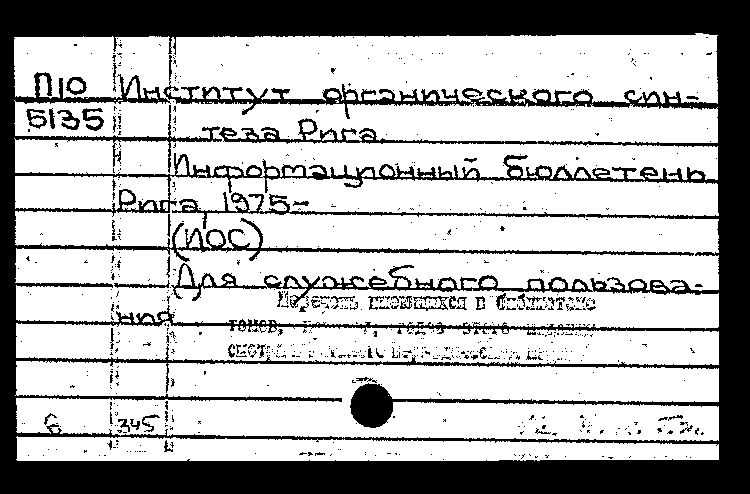 П10 Институт органического син-
Б135 теза Рига.
Информационный бюллетень
Рига, 1975-
(ИОС)
Для служебного пользова-
ния
Перечень имеющихся в библиотеке
томов, годов этого издания
6 345